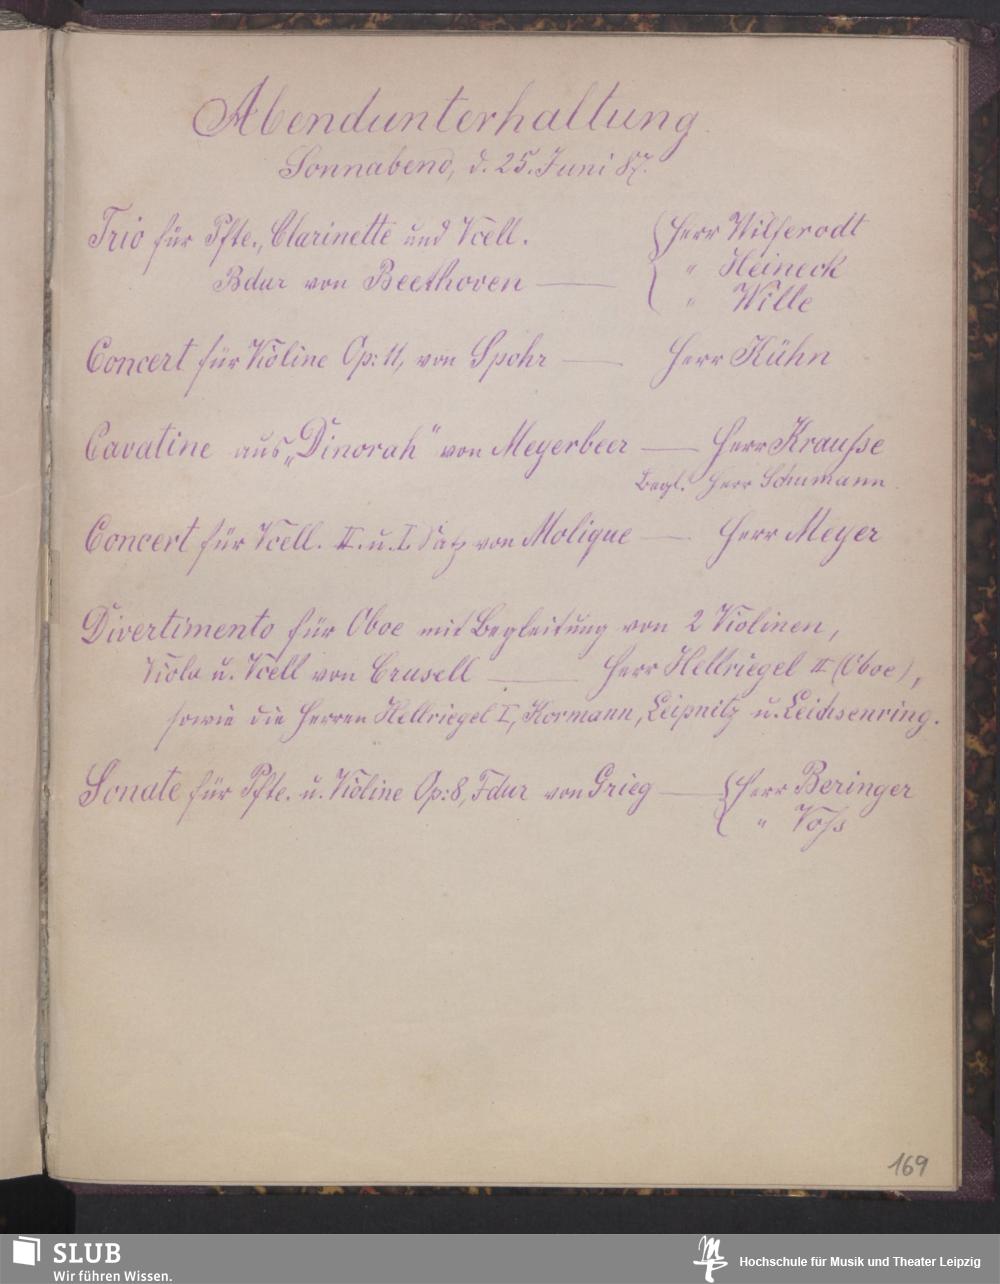 Abendunterhaltung
Sonnabend, d. 25. Juni 87.
Trio für Pfte., Clarinette und Vcell.
Bdur von Beethoven — { Herr Wilferodt
" Heineck
" Wille
Concert für Violine Op: 11, von Spohr — Herr Kühn
Cavatine aus „Dinorah" von Meyerbeer — Herr Kraußse
Begl. Herr Schumann
Concert für Vcell. II. u. I. Satz von Molique — Herr Meyer
Divertimento für Oboe mit Begleitung von 2 Violinen,
Viola u. Vcell von Crusell — Herr Hellriegel II (Oboe),
sowie die Herren Hellriegel I, Kormann, Leipnitz u. Leichsenring.
Sonate für Pfte. u. Violine Op: 8, Fdur von Grieg — { Herr Beringer
" Voß
169
SLUB
Wir führen Wissen.
Hochschule für Musik und Theater Leipzig